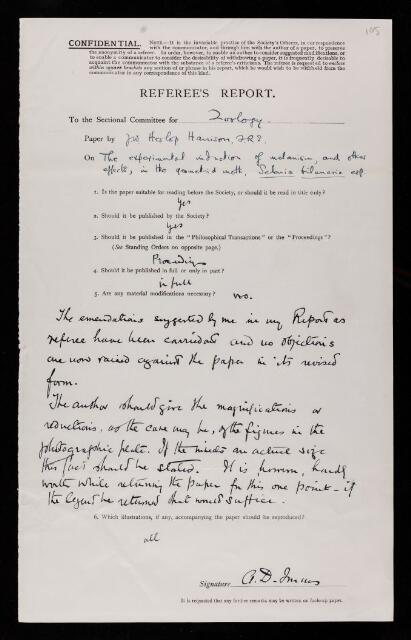 105
CONFIDENTIAL. NOTE.—It is the invariable practice of the Society's Officers, in correspondence
with the communicator, and through him with the author of a paper, to preserve
the anonymity of a referee. In order, however, to enable an author to consider suggested modifications, or
to enable a communicator to consider the desirability of withdrawing a paper, it is frequently desirable to
acquaint the communicator with the substance of a referee's criticisms. The referee is requested to enclose
within square brackets any section of or phrase in his report, which he would wish to be withheld from the
communicator in any correspondence of this kind.
REFEREE'S REPORT.
To the Sectional Committee for Zoology
Paper by J.W. Heslop Harrison, F.R.S.
On The experimental induction of melanism, and other
effects, in the geometrid moth, Selenia bilunaria esp.
1. Is the paper suitable for reading before the Society, or should it be read in title only?
Yes
2. Should it be published by the Society?
Yes
3. Should it be published in the "Philosophical Transactions" or the "Proceedings"?
(See Standing Orders on opposite page.)
Proceedings
4. Should it be published in full or only in part?
in full
5. Are any material modifications necessary? no.
The emendations suggested by me in my Report as
referee have been carried out and no objections
are now raised against the paper in its revised
form.
The author should give the magnifications or
reductions, as the case may be, of the figures in the
photographic plate. If the are actual size
this fact should be stated. It is however, hardly
worth while returning the paper for this one point – if
the legend be returned that would suffice.
6. Which illustrations, if any, accompanying the paper should be reproduced?
all
Signature A.D. Imms
It is requested that any further remarks may be written on foolscap paper.